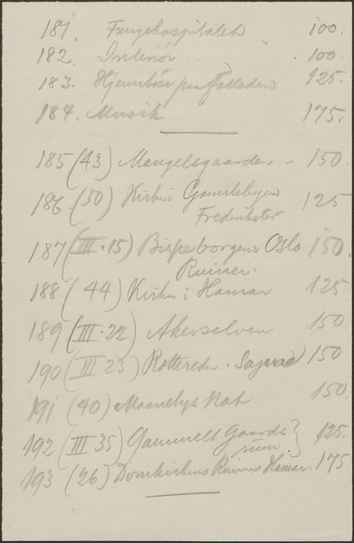 181. Fangehospitalet 100.
182. Interiør 100.
183. Hjemløs paa Gladen 125.
184. Musik 175.
185 (43) Mangelsgaarden - 150.
186 (50) Kirken Gamlebyen 125
Fredrikstad
187 (III.15) Bispeborgens Oslo 150.
Ruiner.
188 (44) Kirken i Hamar 125
189 (III.22) Akerselven 150
190 (III 23) . 150
191 (40) 150.
192 (III 35) Gammelt 125.
193 (26) Domkirkens Ruiner Hamar. 175